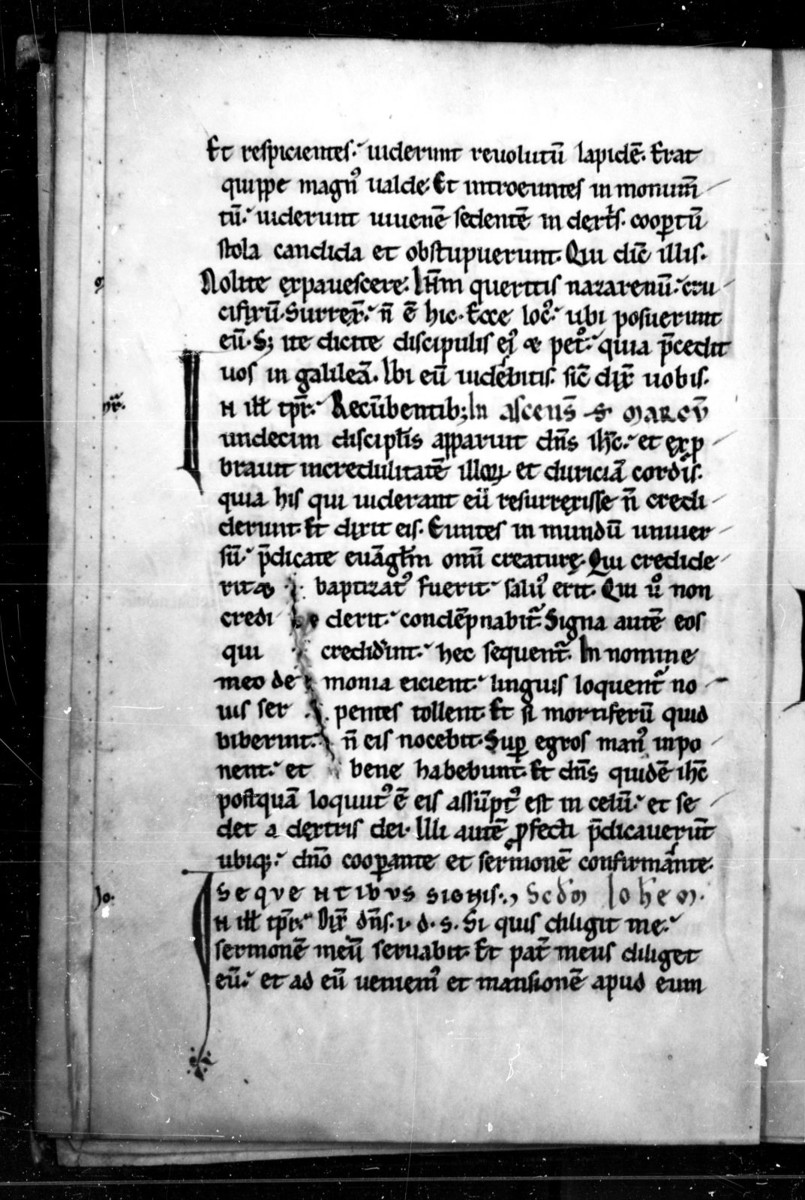 Et respicientes. uiderunt reuolutū lapidē. Erat
quippe magnꝰ ualde. Et introeuntes in monum̄
tū. uiderunt iuuenē sedentē in dext̄s. coop̄tū
stola candida et obstupuerunt. Qui dic̄ illis.
Nolite expauescere. Ih̄m queritis nazarenū. cru
cifixū. Surrex̄. n̄ ē hic. Ecce locꝰ. ubi posuerunt
eū. Sꝫ ite dicite discipulis eiꝰ & pet̄. quia p̄cedit
uos in galileā. Ibi eū uidebitis. sic̄ dix̄ uobis.
mr̄.
IN ill̄ tp̄r. Recūbentibꝫ In ascens̄ S MARCV̄
undecim discip̄lis apparuit dn̄s ih̄c. et exp
brauit incredulitatē illoꝝ et duriciā cordis.
quia his qui uiderant eū resurrexisse n̄ credi
derunt. Et dixit eis. Euntes in mundū uniuer
sū. p̄dicate euāgl̄m omī creature. Qui credide
rit & baptizatꝰ fuerit. saluꝰ erit. Qui ū non
credi derit. condēpnabit̄. Signa autē eos
qui crediderint. hec sequent̄. In nomine
meo de monia eicient. linguis loquent̄ no
uis ser pentes tollent. Et si mortiferū quid
biberint. n̄ eis nocebit. Sup̄ egros manꝰ inpo
nent. et bene habebunt. Et dn̄s quidē ih̄c
postquā loquutꝰ ē eis assūptꝰ est in celū. et se
det a dextris dei. Illi autē ꝓfecti p̄dicauerūt
ubiqꝫ. dn̄o coop̄ante et sermonē confirmāte.
SEQVENTIBVS SIGNIS., Scd̄m Ioh̄em.
Jo.
IN ill̄ tp̄r. Dix̄ dn̄s. i. d. s. Si quis diligit me.
sermonē meū seruabit. Et pat̄ meus diliget
eū. et ad eū ueniemꝰ et mansionē apud eum